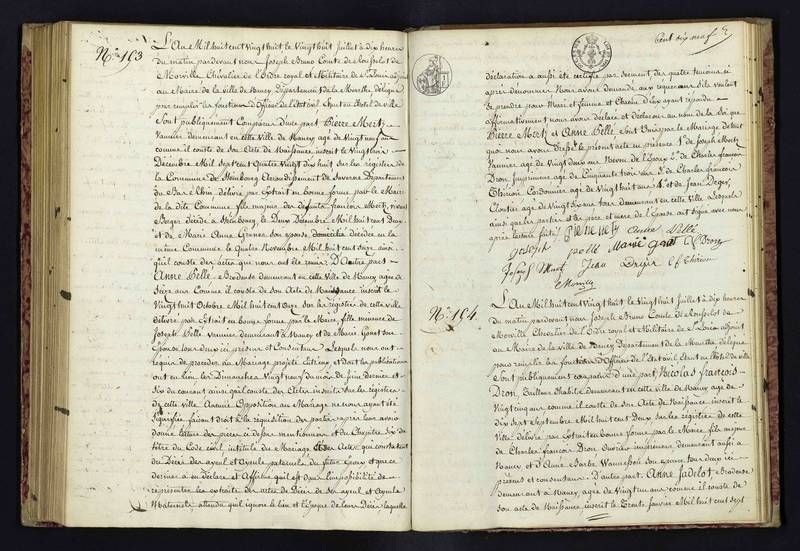 No. 193
L'An Mil huit cent Vingt huit le Vingt huit Juillet à dix heures
du matin pardevant nous Joseph Bruno Comte de
Morville Chevalier de l'Ordre royal et Militaire de St Louis adjoint
au Maire de la ville de Nancy Département de la Meurthe délégué
pour remplir les fonctions d'Officier de l'état civil en l'hotel de ville
Sont publiquement Comparu D'une part Pierre Mertz
Vannier demeurant en cette Ville de Nancy agé de Vingt neuf ans
comme il conste de son Acte de Naissance inscrit le Vingt trois
Décembre Mil Sept cent Quatre Vingt dix huit sur les registres de
la Commune de Steinbourg Arrondissement de Saverne Département
du Bas Rhin délivré par Extrait en bonne forme par le Maire
de la dite Commune fils majeur des défunts françois Mertz, vivant
Berger décédé à Steinbourg le Deux Décembre Mil huit cent
et de Marie Anne son épouse domiciliée décédée en la
même Commune le Quatre Novembre Mil huit cent ainsi
qu'il conste des actes qui nous ont été remis D'Autre part
Anne Belle Brodeuse demeurant en cette Ville de Nancy agée de
Seize ans Comme il conste de son Acte de Naissance inscrit le
Vingt huit Octobre Mil huit cent onze sur les registres de cette ville
délivré par Extrait en bonne forme par le Maire, fille mineure de
Joseph Belle Vannier demeurant à Nancy et de Marie Gonet son
Epouse tous deux ici présens et Consentans Lesquels nous ont
requis de procéder au Mariage projeté entr'eux et dont les publications
ont eu lieu les Dimanches Vingt neuf du mois de Juin dernier et
Six du courant ainsi qu'il conste des Actes inscrits sur les registres
de cette ville Aucune Opposition au Mariage ne nous ayant été
Signifiée faisant droit à la réquisition des parties après leur avoir
donné lecture des pièces ci dessus mentionnées et du Chapitre Six du
titre du Code civil intitulé du Mariage et des Actes qui constatent
du Décès des ayeul et Ayeule paternels du futur Epoux et que ce
dernier a déclaré et Affirmé qu'il est dans l'impossibilité de
représenter les extraits des actes de Décès de son ayeul et Ayeule
Maternels, attendu qu'il ignore le lieu et l'époque de leur Décès, laquelle
Cent dix neuf
déclaration a aussi été certifiée par serment des quatre témoins ci
après dénommés Nous avons demandé aux requérans s'ils veulent
se prendre pour Mari et femme et Chacun d'eux ayant répondu
affirmativement nous avons déclaré et déclarons au nom de la loi que
Pierre Mertz et Anne Belle Sont Unis par le Mariage de tout
quoi nous avons dressé le présent acte en présence 1° de Joseph Mertz
Vannier agé de Vingt deux ans Neveu de l'époux 2° de Charles françois
Dron imprimeur agé de Cinquante trois ans 3° de Charles françois
Thirion Cordonnier agé de Vingt huit ans 4° et de Jean Deger,
Cloutier agé de Vingt six ans tous demeurant en cette Ville Lesquels
ainsi que les parties et les père et mère de l'épouse ont signé avec nous
après lecture faite
Pierre Mertz Anne Belle
Joseph Marie Gonet Dron
Joseph Jean Deger Cf Thirion
Morville
No. 194
L'An Mil huit cent Vingt huit le Vingt huit Juillet à dix heures
du matin pardevant nous Joseph Bruno Comte de
Morville Chevalier de l'Ordre royal et Militaire de St Louis adjoint
au Maire de la Ville de Nancy Département de la Meurthe délégué
pour remplir les fonctions d'Officier de l'état civil en l'hotel de ville
Sont publiquement comparu D'une part Nicolas françois
Dron, Tailleur d'habits demeurant en cette ville de Nancy agé de
Vingt cinq ans comme il conste de son Acte de Naissance inscrit le
dix Sept Septembre Mil huit cent Deux sur les registres de cette
Ville délivré par Extrait en bonne forme par le Maire fils majeur
de Charles françois Dron Ouvrier imprimeur demeurant aussi à
Nancy et D'Anne Barbe son épouse tous deux ici
présens et consentans D'autre part Anne Brodeuse
demeurant à Nancy, agée de Vingt un ans comme il conste de
son acte de Naissance inscrit le Trente Janvier Mil huit cent Sept